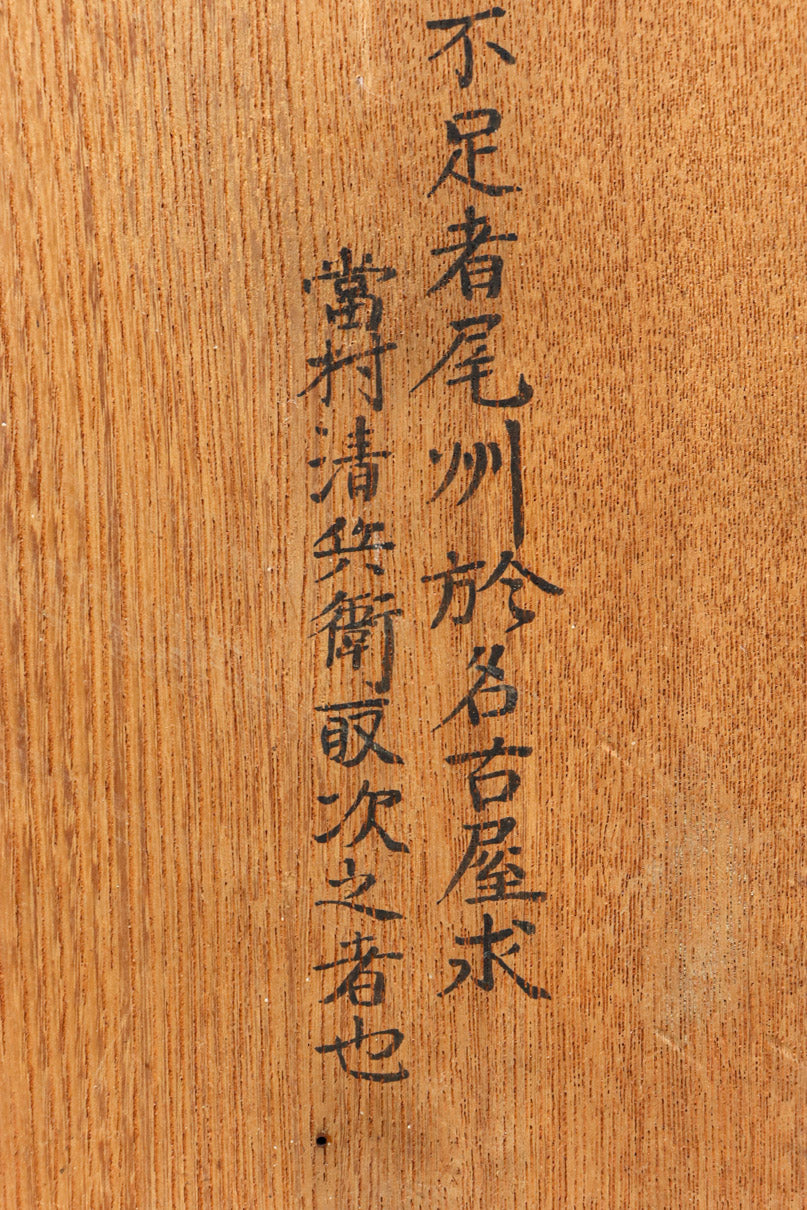 不足者尾州於名古屋求
當村清兵衛取次之者也